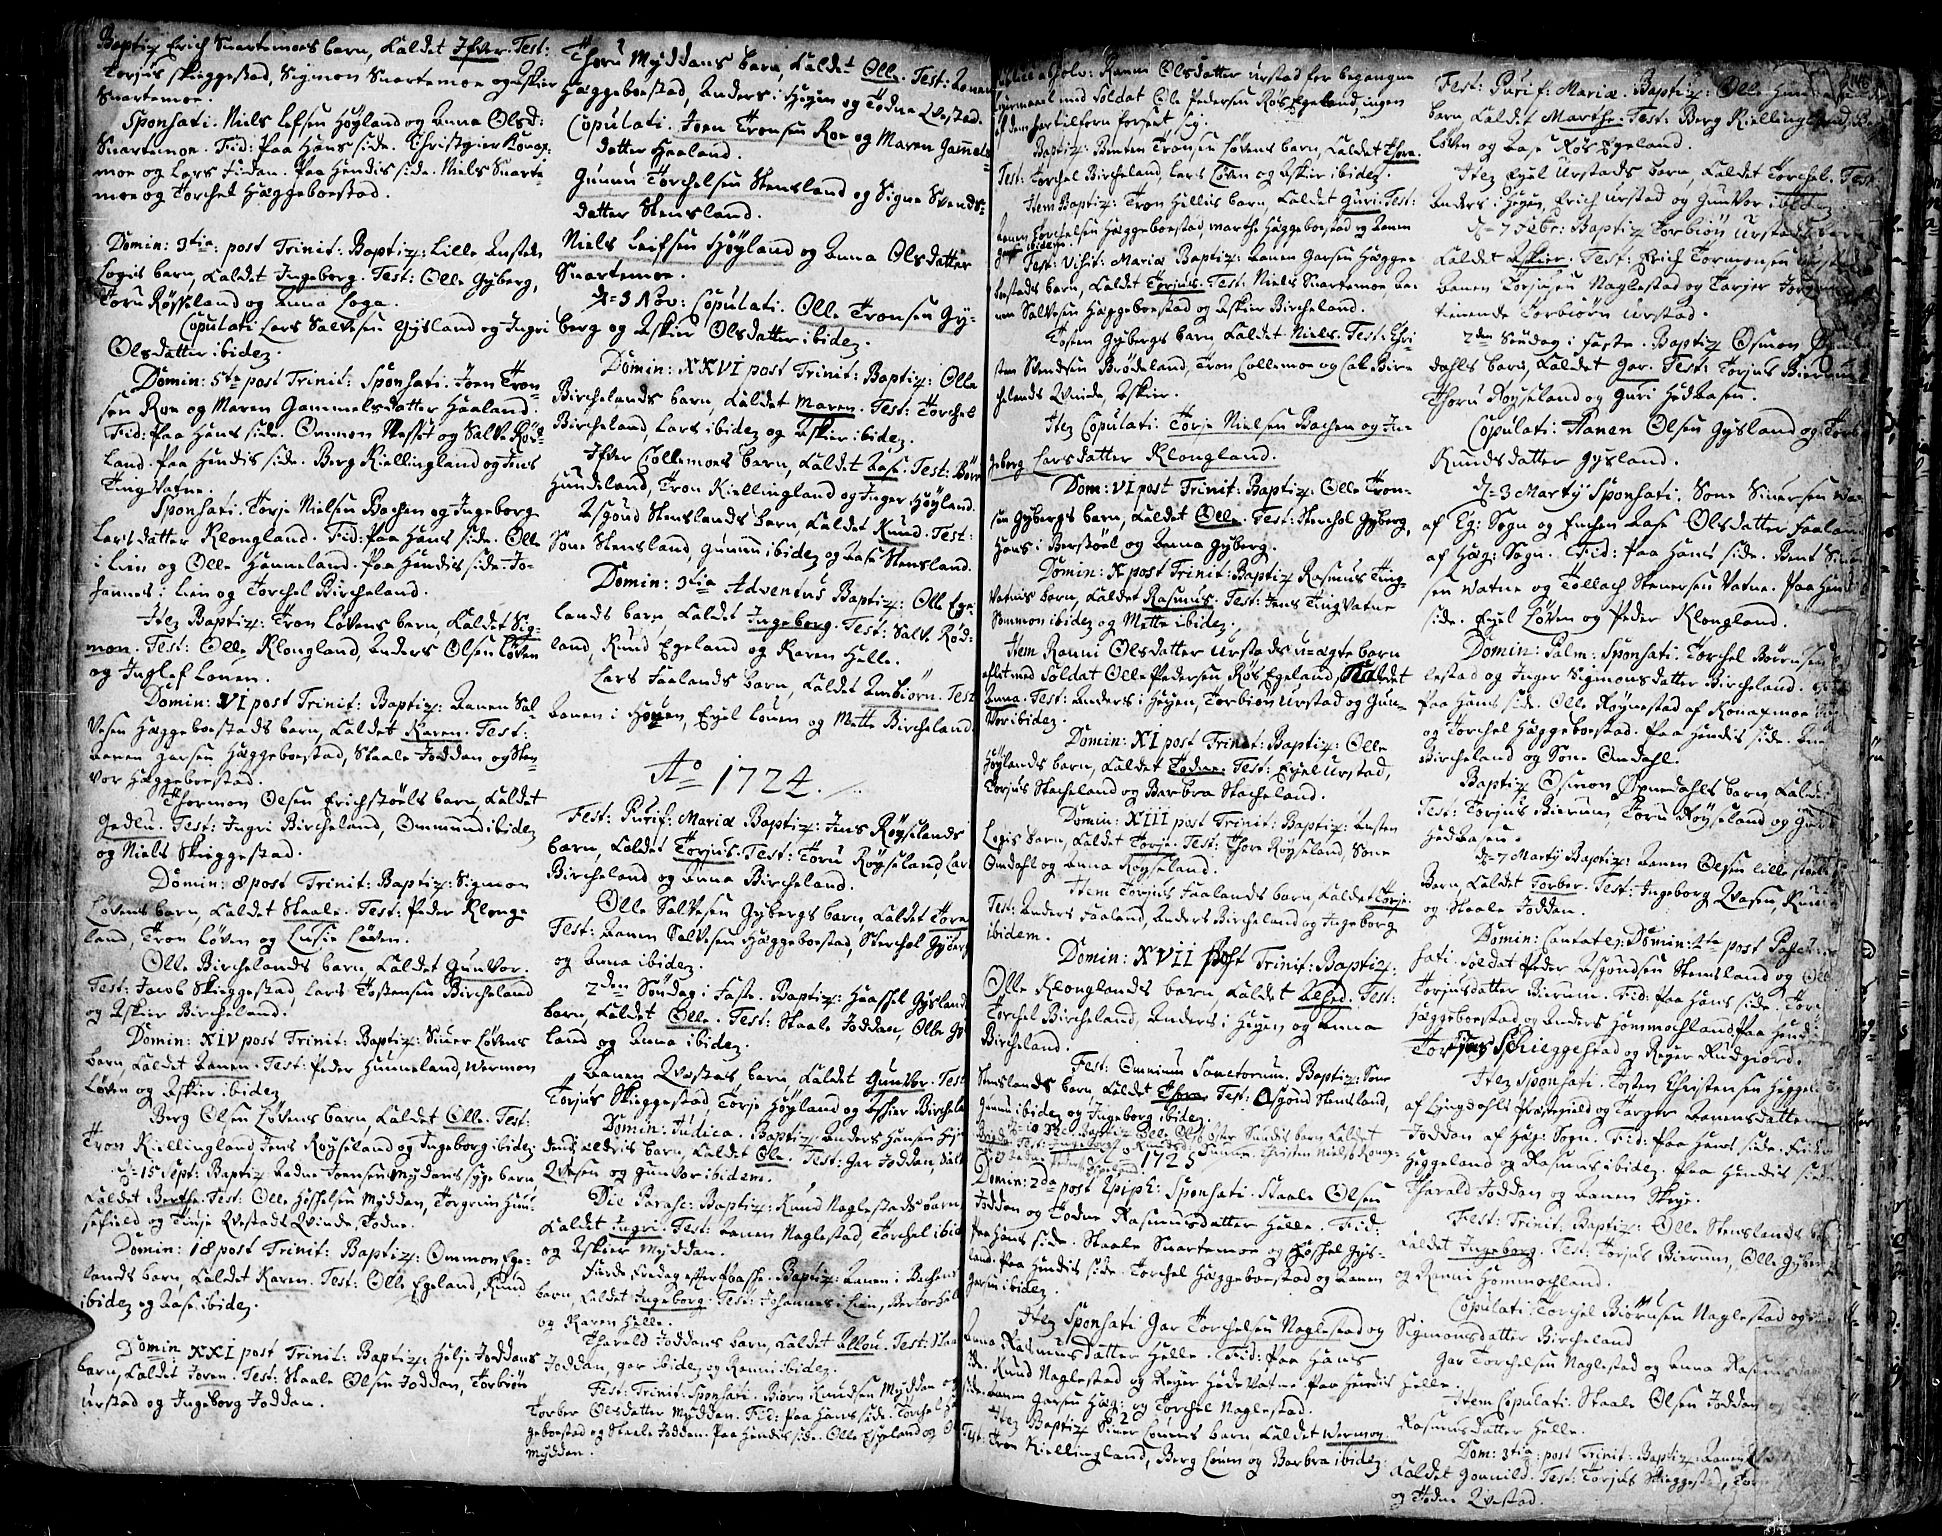 Baptiz Erich Snartemoes barn, kaldet Ifver. Test:
Torjus Skieggestad, Sigmon Snartemoe og Askier
Snartemoe.
Sponsati. Niels Lefsen Höyland og Anna Olsd:
Snartemoe. Fid: paa Hans side. Christgier Konap-
moe og Lars Fidan. paa Hendis side. Niels Snarte-
moe og Torchel Hæggeboestad.
Domin: 3tia: post Trinit: Baptiz: Lille Ansten
Logis barn, kaldet Ingeborg. Test: Olle Gyberg,
Toru Röysland og Anna Loga.
Copulati Lars Salvesen Gysland og Ingri
Olsdatter ibidem.
Domin: 5te post Trinit: Sponsati. Joen Tron-
sen Roe og Maren Gammelsdatter Haaland.
Fid: paa Hans side. Ommon Nessöt og Salve Röd-
land. paa Hendis side. Berg Kiellingland og Jens
Tingvatne.
Sponsati. Torje Nielsen Bachen og Ingeborg
Larsdatter Klongland. Fid: paa Hans side. Olle
i Lien og Olle Hanneland. paa Hendis side. Jo-
hannes i Lien og Torchel Bircheland.
Item Baptiz: Tron Lövens barn, kaldet Sig-
mon. Test: Olle Klongland, Anders Olsen Löven
og Inglef Louen.
Domin: VI post Trinit: Baptiz: Aanen Sal-
vesen Hæggeboestads barn, kaldet Karen. Test:
Aanen Garsen Hæggeboestad, Staale Joddan og Sten-
vor Hæggeboestad.
Thormon Olsen Erichstöls barn, kaldet
Gedlu. Test: Ingri Bircheland, Ommund ibidem
og Niels Skieggestad.
Domin: 8 post Trinit: Baptiz: Sigmon
Lövens barn, kaldet Staale. Test: Peder Klong-
land, Tron Löven og Lusie Löven.
Olle Birchelands barn, kaldet Gunvor.
Test: Jacob Skieggestad, Lars Tostensen Bircheland
og Askier Bircheland.
Domin: XIV post Trinit: Baptiz: Siuer Lövens
barn kaldet Aanen. Test: Peder Hunneland, Wermon
Löven og Askier ibidem
Berg Olsen Lövens barn, kaldet Olle. Test:
Tron Kiellingland, Jens Röyseland og Ingeborg ibidem
d: 15 Sept: Baptiz Aadne Joensen Myddans syge barn
kaldet Berthe. Test: Olle Hisselsen Myddan, Torgrim Hun-
sefield og Tinje Qvestads Qvinde, Todne.
Domin: 18 post Trinit: Baptiz: Ommon Ege-
lands barn, kaldet Karen. Test: Olle Egeland, Knud
ibidem og Aase ibidem.
Domin XXI post Trinit: Baptiz: Helje Joddans
barn, kaldet Joren. Test: Staale Olsen Joddan, Torbiön
Urstad og Ingeborg Joddan.
Thoru Myddans barn, kaldet Olle. Test: Aanen
Hæggeboestad, Anders i Heyen og Todne Qvestad.
Copulati. Joen Tronsen Roe og Maren Gammels-
datter Haaland.
Gunnu Torchelsen Stensland og Signe Svends-
datter Stensland.
Niels Leifsen Höyland og Anna Olsdatter
Snartemoe.
d: 3 Nov: Copulati. Olle Tronsen Gy-
berg og Askier Olsdatter ibidem.
Domin: XXVI post Trinit: Baptiz: Olle
Birchelands barn, kaldet Maren. Test: Torchel
Bircheland, Lars ibidem og Askier ibidem.
Ifver Collemoes barn, kaldet Aase. Test: Börn
Hundeland, Tron Kiellingland og Inger Höyland.
Asgönd Stenslands barn, kaldet Knud. Test:
Sone Stensland, Gunnu ibidem og Aase Stensland.
Domin: 3tia Adventus Baptiz: Olle Ege-
lands barn kaldet Ingeborg. Test: Salve Röd-
land, Knud Egeland og Karen Helle.
Lars Faalands barn, kaldet Ambiörn. Test
Aanen i Heyen, Eyel Löuen og Mette Bircheland
Ao 1724.
Fest: Purif: Mariæ Baptiz: Jens Röyselands
barn, kaldet Torjus. Test: Toru Röyseland Lars
Bircheland og Anna Bircheland.
Olle Salvesen Gybergs barn, kaldet Tore.
Test: Aanen Salvesen Hæggeboestad, Storchol Gyberg
og Anna ibidem.
2den Söndag i Faste. Baptiz: Haassel Gyslands
barn, kaldet Olle. Test: Staale Joddan, Olle Gys-
land og Anna ibidem.
Aanen Qvestas barn, kaldet Gunvor. Test
Torjus Skieggestad, Torje Höyland og Askier Birchela
Domin: Judica. Baptiz: Anders Hansen
barn, kaldet Ole. Test: Gar Joddan,
Qvesen og Gunvor ibidem.
Die Parasc: Baptiz: Knud Naglestads barn
kaldet Ingri. Test: Aanen Naglestad, Torchel ibid
og Askier Myddan.
Fierde Fredag efter Paasche. Baptiz: Aanen i Bachens
barn, kaldet Ingeborg. Test: Johannes i Lien, Bertor Hel
og Karen Helle.
Tharald Joddans barn, kaldet Allou. Test: Staa
Joddan, Gar ibidem og Ranni ibidem.
Fest: Trinit: Sponsati. Biörn Knudsen Myddan og
Torber Olsdatter Myddan. Fid: paa Hans side. Torchel Hæg-
geboestad og Staale Joddan. paa Hendis side. Olle Egeland og
Myddan.
Absolv: Ranni Olsdatter Urstad for begangne
Leiermaal med Soldat Ole Pedersen Rös Egeland, ingen
af dem her tilforn forseet sig.
Baptiz: Benten Tronsen Lövens barn, kaldet Thore.
Test: Torchel Bircheland, Lars Löven og Askier ibidem.
Item Baptiz: Tron Hellis barn, kaldet Guri. Test:
Aanen Torchelsen Hæggeboestad, Marthe Hæggeboestad og Aanen
ibidem.
Fest: Visit: Mariæ Baptiz: Aanen Garsen Hægge-
boestads barn, kaldet Torjus. Test: Niels Snartemoe, Aa-
nen Salvesen Hæggeboestad og Askier Bircheland.
Tosten Gybergs barn kaldet Niels. Test: Chri-
sten Stensen Brödeland, Tron Collemoe og Lars Bir-
chelands Qvinde, Askier.
Item Copulati: Torje Nielsen Bachen og In-
geborg Larsdatter Klongland.
Dom: VI post Trinit: Baptiz: Olle Tron-
sen Gybergs barn, kaldet Olle. Test: Storchol Gyberg,
Hans i Berstöel og Anna Gyberg.
Domin: X post Trinit: Baptiz Rasmus Ting-
vatnis barn, kaldet Rasmus. Test: Jens Tingvatne
Sommon ibidem og Mette ibidem.
Item Ranni Olsdatter Urstads u-ægte barn
aflet med Soldat Olle Pedersen Rös Egeland, kaldet
Anna. Test: Anders i Heyen, Torbiön Urstad og Gun-
vor ibidem.
Domin: XI post Trinit: Baptiz: Olle
Höylands barn, kaldet Todne. Test: Eyel Urstad,
Torjus Stacheland og Barbra Stacheland.
Domin: XIII post Trinit: Baptiz: Ansten
Logis barn, kaldet Torje. Test: Thore Röyseland, Sone
Omdahl og Anna Röyseland.
Item Torjus Faalands barn, kaldet Torje.
Test: Anders Faaland, Anders Bircheland og Ingeborg
ibidem.
Domin: XVII post Trinit: Baptiz:
Olle Klonglands barn kaldet Alhed. Test:
Torchel Bircheland, Anders i Heyen og Anna
Bircheland.
Fest: Omnium Sanctorum. Baptiz: Sone
Stenslands barn, kaldet Thore. Test: Asgönd Stensland,
Gunnu ibidem og Ingeborg ibidem.
1725
Domin: 2da post Epiph: Sponsati. Staale Olsen
Joddan og Todne Rasmusdatter Helle. Fid:
paa Hans side. Staale Snartemoe og Hoskel Gys-
land. paa Hendis side. Torchel Hæggeboestad og Aanen
Garsen ibidem.
Item Sponsati Gar Torchelsen Naglestad og
Anna Rasmusdatter Helle. Fid: paa Hans
side. Knud Naglestad og Reyer Hedevatne. paa Hendis
side. Aanen Garsen Hæg: og Torchel Naglestad.
Item Baptiz Siuer Löuens barn kaldet Wermon.
Test: Tron Kiellingland, Berg Löuen og Barbra ibidem.
Fest: Purif: Mariæ. Baptiz: Olle
barn, kaldet Marthe. Test: Berg Kiellingland,
Löven og Aase Rös Egeland.
Item Eyul Urstads barn, kaldet Torchel. Test:
Anders i Heyen, Erich Urstad og Gunvor ibidem.
d: 7 Febr: Baptiz Torbiön Urstads barn
kaldet Askier. Test: Erich Tormonsen Urstad
Aanen Torjusen Naglestad og Torjer
tienende Torbiörn Urstad.
2den Söndag i Faste. Baptiz Osmon
dahls barn, kaldet Gar. Test: Torjus Bierum
Thoru Röyseland og Guri Hedbasen.
Copulati: Hanen Olsen Gysland og
Knudsdatter Gysland.
d: 3 Martij Sponsati. Sone Siuersen
af Eg: Sogn og Enchen Aase Olsdatter Faaland
af Hæg: Sogn. Fid: paa Hans side. Bent
sen Watne og Tollach Stenersen Watne. paa Hend
side. Eyel Löven og Peder Klongland.
Domin: Palm: Sponsati. Torchel Börnsen
lestad og Inger Sigmonsdatter Bircheland.
paa Hans side. Olle Röynestad af Konapmoe
og Torchel Hæggeboestad. paa Hendis side.
Bircheland og Sone Omdahl.
Baptiz Osmon Öpnedahls barn, kaldet
Test: Torjus Bierum, Toru Röyseland og Guri
Hedbasen.
d: 7 Martij Baptiz: Aanen Olsen
barn, kaldet Torber. Test: Ingeborg Qvasen,
og Staale Joddan.
Domin: Cantate: Domin: 4ta post Pasch:
sati. Soldat Peder Asgöndsen Stensland og
Torjusdatter Bierum. Fid: paa Hans side. Torc
Hæggeboestad og Anders Hommochland paa Hendis
Torjus Skieggestad og Reyer Rudgiord.
Item Sponsati. Tosten Christensen Heggel
af Lyngdahls Præstegield og Torger Aanensdatter
Joddan af Hæg: Sogn. Fid: paa Hans side.
Heggeland og Rasmus ibidem. paa Hendis side
Tharald Joddan og Aanen Skeje.
Fest: Trinit: Baptiz: Olle Stenslands
kaldet Ingeborg. Test: Torjus Bierum, Olle Gyber
og Ranni Hommochland.
Copulati Torchel Biörnsen Naglestad og
Sigmonsdatter Bircheland
Gar Torchelsen Naglestad og Anna Rasmus
Helle.
Item Copulati. Staale Olsen Joddan
Rasmusdatter Helle.
Dom: 3tia: post Trinit: Baptiz: Aanen
kaldet Gonnild. Test: Torjus Skieggestad,
og Todne Qvestad.